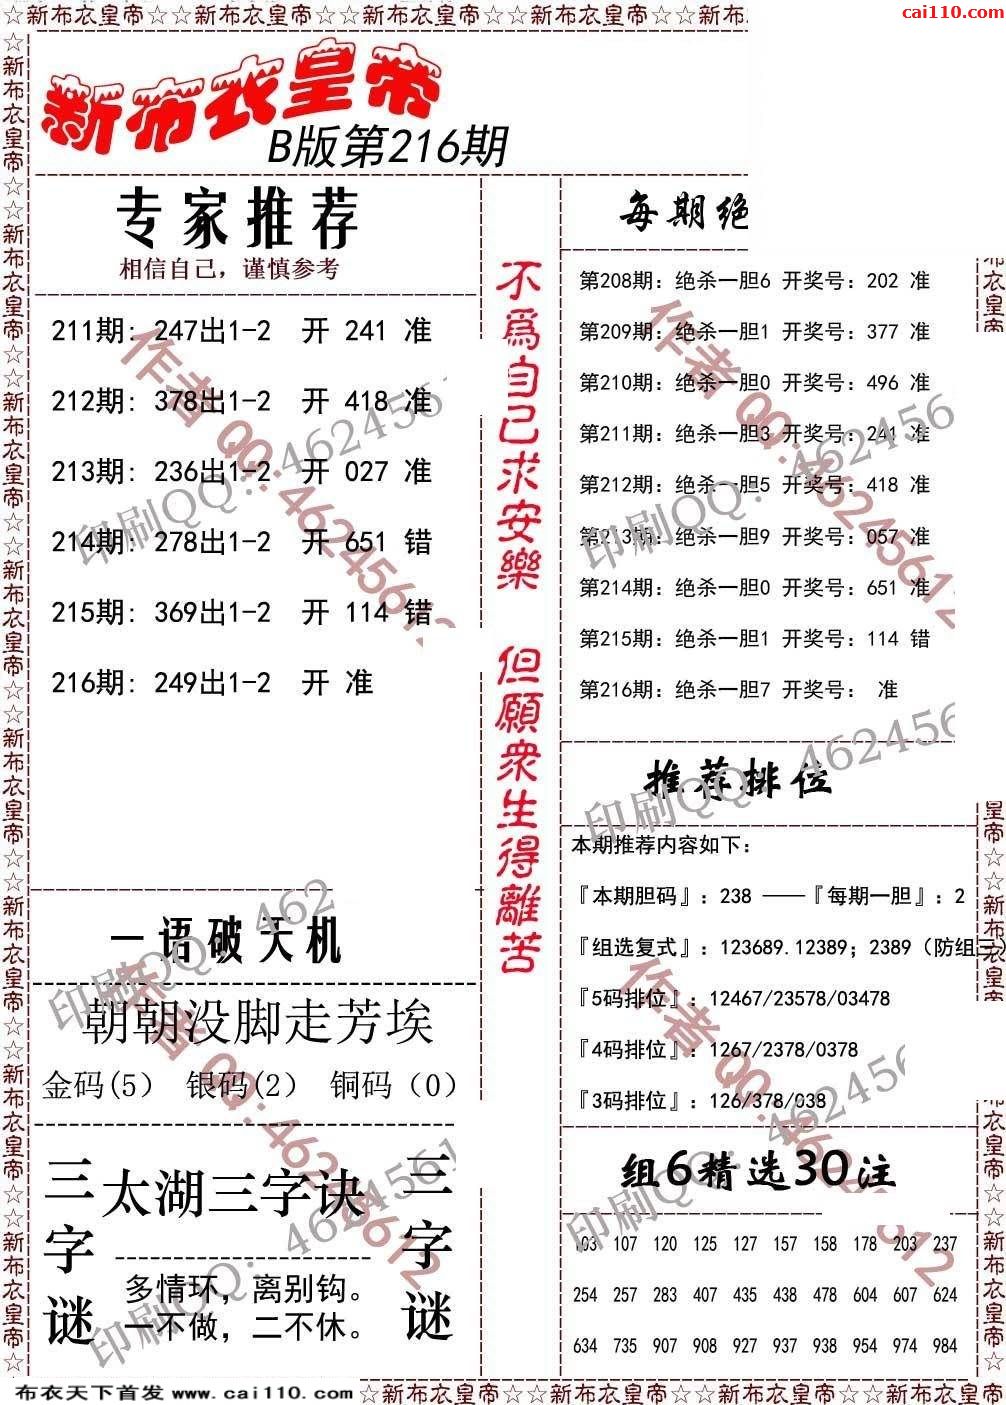 ☆新布衣皇帝☆☆新布衣皇帝☆☆新布衣皇帝☆☆新布衣皇帝☆☆新布
cai110.com
新布衣皇帝
B版第216期
专家推荐
相信自己，谨慎参考
211期: 247出1-2 开 241 准
212期: 378出1-2 开 418 准
213期: 236出1-2 开 027 准
214期: 278出1-2 开 651 错
215期: 369出1-2 开 114 错
216期: 249出1-2 开 准
一语破天机
朝朝没脚走芳埃
金码(5) 银码(2) 铜码（0）
三字谜
太湖三字诀
多情环，离别钩。
一不做，二不休。
三字谜
不爲自己求安樂
但願衆生得離苦
每期绝
第208期：绝杀一胆6 开奖号：202 准
第209期：绝杀一胆1 开奖号：377 准
第210期：绝杀一胆0 开奖号：496 准
第211期：绝杀一胆3 开奖号：241 准
第212期：绝杀一胆5 开奖号：418 准
第213期：绝杀一胆9 开奖号：057 准
第214期：绝杀一胆0 开奖号：651 准
第215期：绝杀一胆1 开奖号：114 错
第216期：绝杀一胆7 开奖号： 准
推荐排位
本期推荐内容如下：
『本期胆码』：238 ——『每期一胆』：2
『组选复式』：123689.12389；2389（防组三）
『5码排位』：12467/23578/03478
『4码排位』：1267/2378/0378
『3码排位』：126/378/038
组6精选30注
103 107 120 125 127 157 158 178 203 237
254 257 283 407 435 438 478 604 607 624
634 735 907 908 927 937 938 954 974 984
作者 QQ:46245612
印刷QQ：462456
布衣天下首发 www.cai110.com
☆新布衣皇帝☆☆新布衣皇帝☆☆新布衣皇帝☆☆新布衣皇帝☆